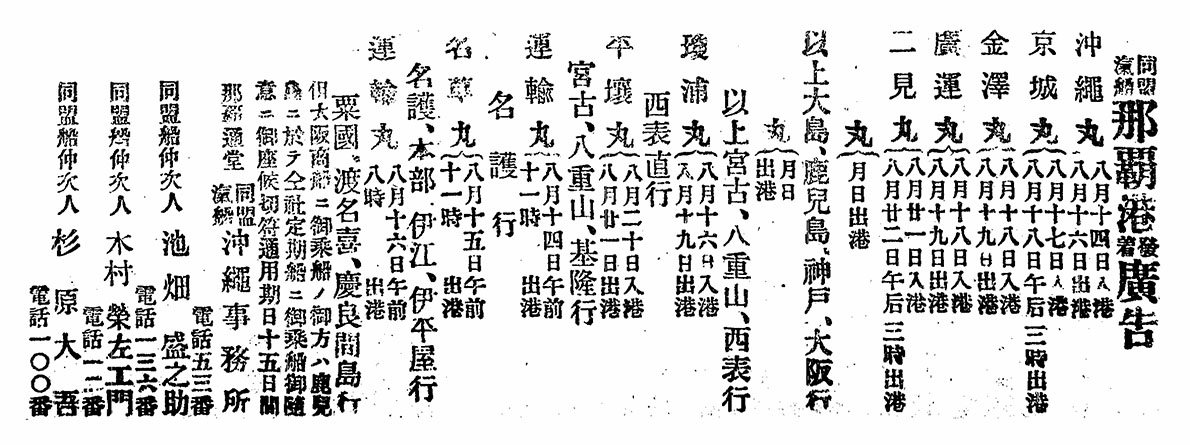 同盟汽船那覇港發着廣告
沖繩丸 八月十四日入港
八月十六日出港
京城丸 八月十七日入港
八月十八日午后三時出港
金澤丸 八月十八日入港
八月十九日出港
廣運丸 八月十八日入港
八月十九日出港
二見丸 八月廿一日入港
八月廿二日午后三時出港
丸 月日出港
以上大島、鹿兒島、神戸、大阪行
丸 月日
出港
以上宮古、八重山、西表行
璦浦丸 八月十六日入港
八月十九日出港
西表直行
平壤丸 八月二十日入港
八月廿一日出港
宮古、八重山、基隆行
運輸丸 八月十四日午前
十一時出港
名護行
名草丸 八月十五日午前
十一時出港
名護、本部、伊江、伊平屋行
運輸丸 八月十六日午前
八時出港
粟國、渡名喜、慶良間島行
但大阪商船ニ御乘船ノ御方ハ鹿兒
島ニ於テ仝社定期船ニ御乘船御隨
意ニ御座候切符通用期日十五日間
那覇通堂 同盟汽船沖繩事務所
電話五三番
同盟船仲次人 池畑盛之助
電話一三六番
同盟船仲次人 木村榮左工門
電話一二番
同盟船仲次人 杉原大吾
電話一〇〇番